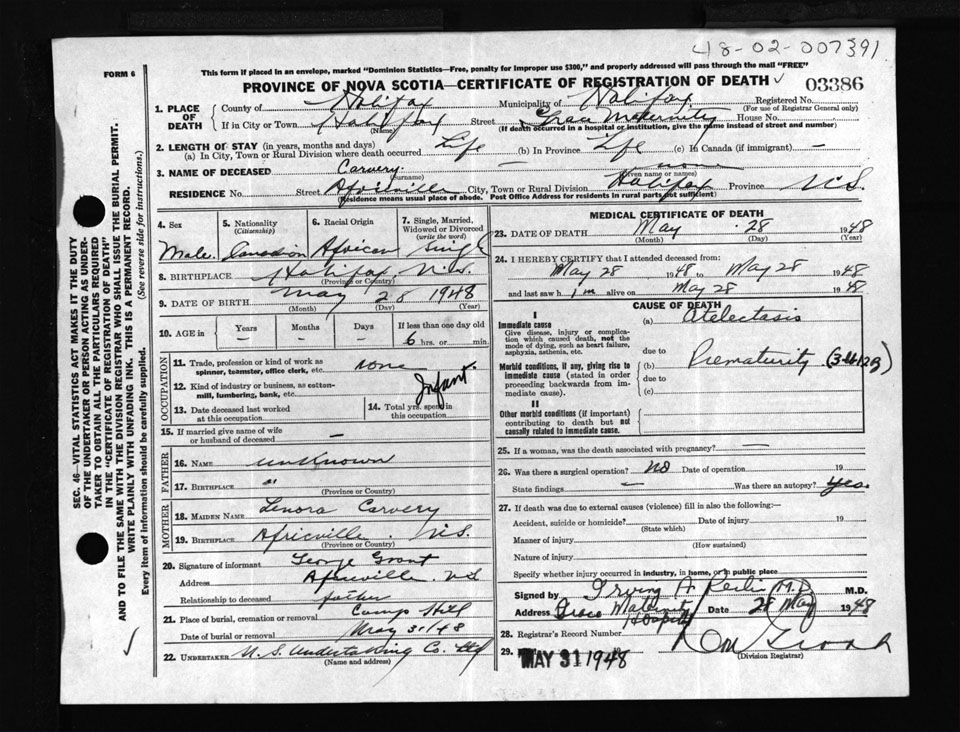 48-02-007391
FORM 6
This form if placed in an envelope, marked "Dominion Statistics—Free, penalty for improper use $300," and properly addressed will pass through the mail "FREE"
PROVINCE OF NOVA SCOTIA—CERTIFICATE OF REGISTRATION OF DEATH ✓ 03386
1. PLACE OF DEATH
County of Halifax Municipality of Halifax Registered No.
(For use of Registrar General only)
If in City or Town Halifax Street Grace Maternity House No.
(Name) (If death occurred in a hospital or institution, give the name instead of street and number)
2. LENGTH OF STAY (in years, months and days)
(a) In City, Town or Rural Division where death occurred Life (b) In Province Life (c) In Canada (if immigrant) —
3. NAME OF DECEASED Carvery none
(Surname) (Given name or names)
RESIDENCE No. Street Africville City, Town or Rural Division Halifax Province N.S.
(Residence means usual place of abode. Post Office Address for residents in rural parts not sufficient)
4. Sex Male
5. Nationality (Citizenship) Canadian
6. Racial Origin African
7. Single, Married, Widowed or Divorced (write the word) Single
8. BIRTHPLACE Halifax, N.S.
(Province or Country)
9. DATE OF BIRTH May 28 1948
(Month) (Day) (Year)
10. AGE in Years Months Days If less than one day old
— — — 6 hrs. or min.
OCCUPATION
11. Trade, profession or kind of work as spinner, teamster, office clerk, etc. none
12. Kind of industry or business, as cotton-mill, lumbering, bank, etc. Infant
13. Date deceased last worked at this occupation
14. Total yrs. spent in this occupation
15. If married give name of wife or husband of deceased —
FATHER
16. NAME unknown
17. BIRTHPLACE "
(Province or Country)
MOTHER
18. MAIDEN NAME Lenora Carvery
19. BIRTHPLACE Africville N.S.
(Province or Country)
20. Signature of informant George Grant
Address Africville N.S
Relationship to deceased father
21. Place of burial, cremation or removal Camp Hill
Date of burial or removal May 31/48
22. UNDERTAKER N.S. Undertaking Co. Ltd
(Name and address)
MEDICAL CERTIFICATE OF DEATH
23. DATE OF DEATH May 28 1948
(Month) (Day) (Year)
24. I HEREBY CERTIFY that I attended deceased from:
May 28 1948 to May 28 1948
and last saw him alive on May 28 1948
CAUSE OF DEATH
I
Immediate cause
Give disease, injury or complication which caused death, not the mode of dying, such as heart failure, asphyxia, asthenia, etc.
(a) Atelectasis
due to
Morbid conditions, if any, giving rise to immediate cause (stated in order proceeding backwards from immediate cause).
(b) Prematurity
due to
(c)
II
Other morbid conditions (if important) contributing to death but not causally related to immediate cause.
25. If a woman, was the death associated with pregnancy? —
26. Was there a surgical operation? No Date of operation 19
State findings — Was there an autopsy? Yes
27. If death was due to external causes (violence) fill in also the following:—
Accident, suicide or homicide? Date of injury 19
(State which)
Manner of injury
(How sustained)
Nature of injury
Specify whether injury occurred in industry, in home, or in public place
Signed by Irving A M.D. M.D.
Address Grace Maternity Hospital Date 28 May 1948
28. Registrar's Record Number
29. MAY 31 1948
(Division Registrar)
SEC. 46—VITAL STATISTICS ACT MAKES IT THE DUTY
OF THE UNDERTAKER OR PERSON ACTING AS UNDER-
TAKER TO OBTAIN ALL THE PARTICULARS REQUIRED
IN THE "CERTIFICATE OF REGISTRATION OF DEATH"
AND TO FILE THE SAME WITH THE DIVISION REGISTRAR WHO SHALL ISSUE THE BURIAL PERMIT.
WRITE PLAINLY WITH UNFADING INK. THIS IS A PERMANENT RECORD.
Every item of information should be carefully supplied. (See reverse side for instructions.)